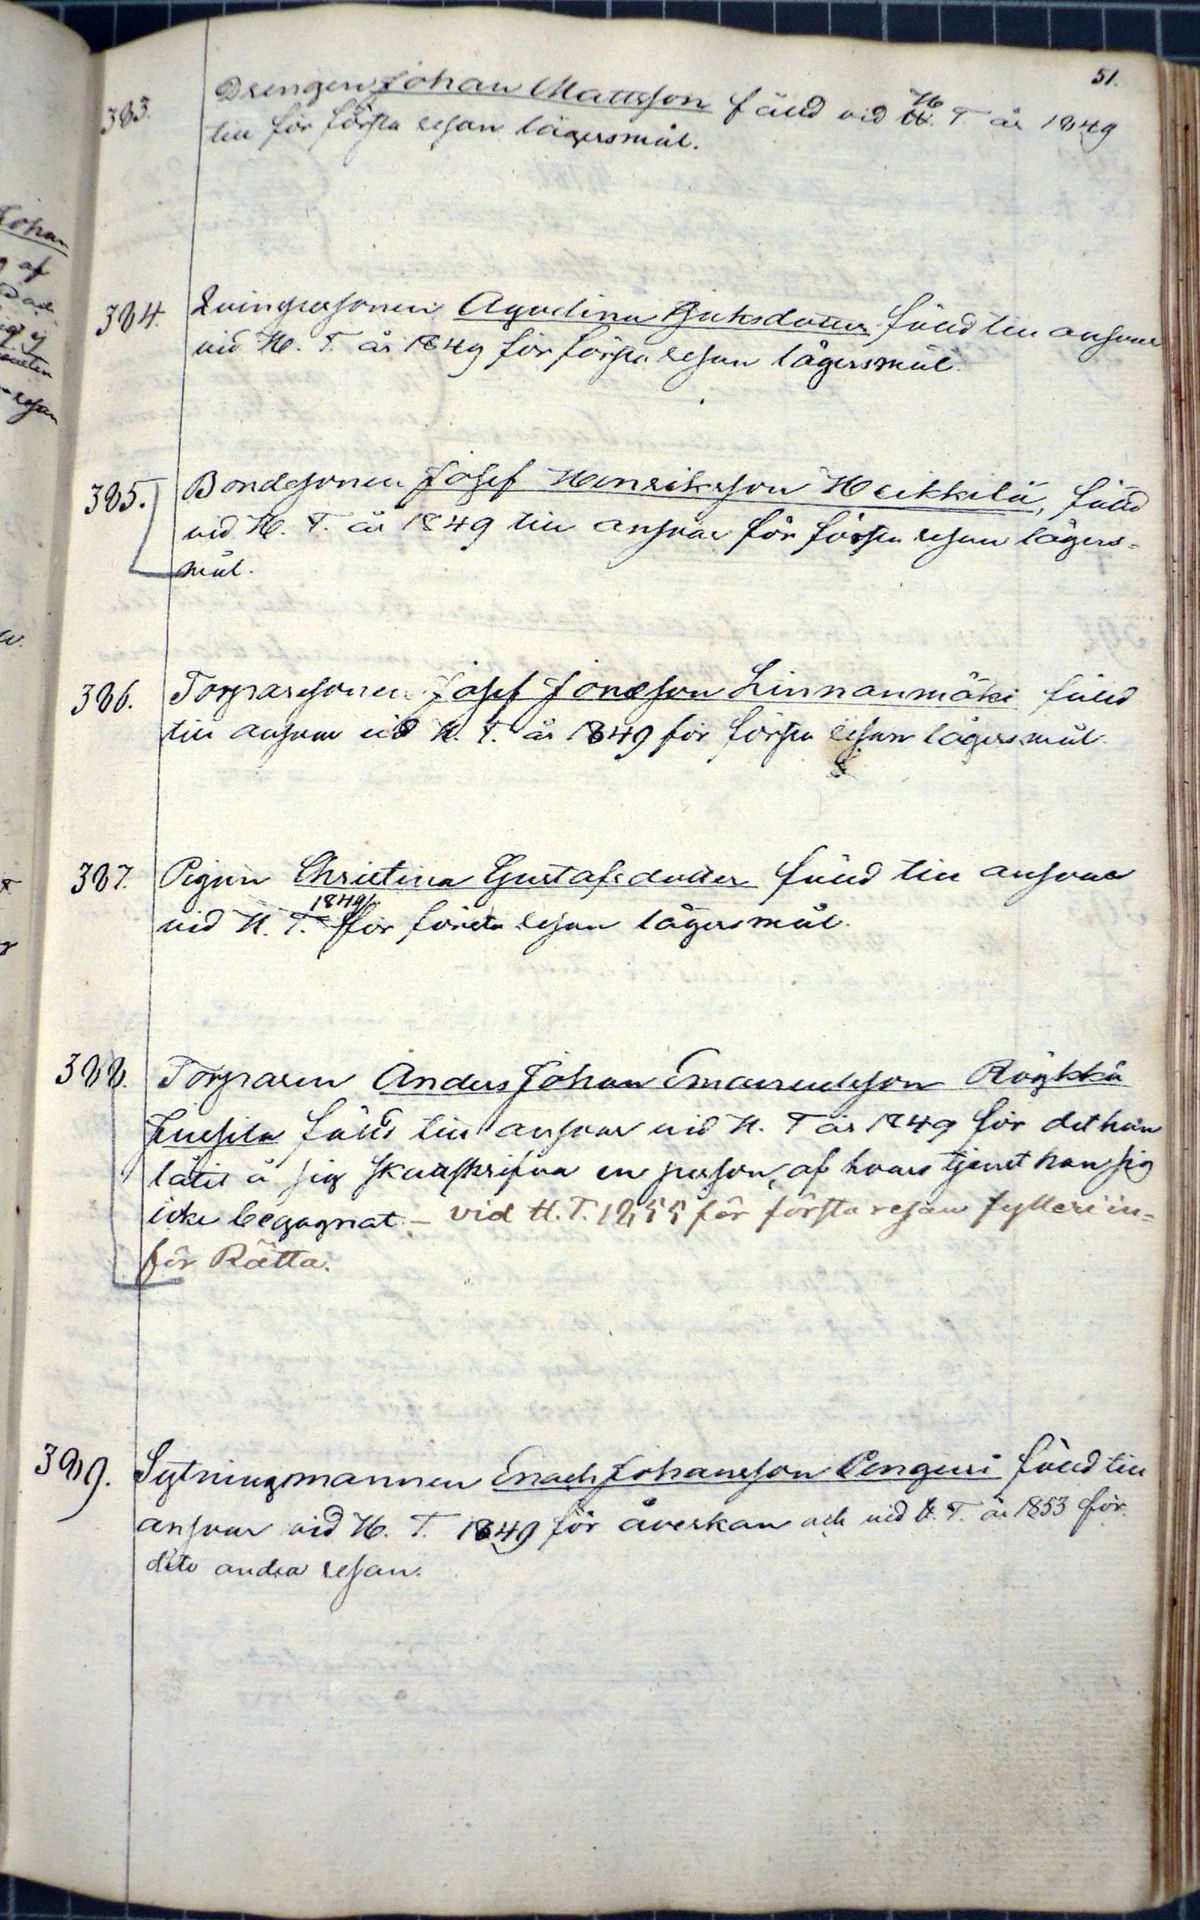 51.
383. Drengen Johan Mattsson fäld vid H. T år 1849
till för första resan lägersmål.
384. Qvinspersonen Agvelina Eriksdotter fäld till ansvar
vid H. T. år 1849 för första resan lägersmål.
385. Bondesonen Josef Henriksson Heikkilä, fäld
vid H. T. år 1849 till ansvar för första resan lägers-
mål.
386. Torparesonen Josef Jonasson Linnanmäki fäld
till ansvar vid H. T. år 1849 för första resan lägersmål.
387. Pigan Christina Gustafsdotter fäld till ansvar
vid H. T. 1849 för första resan lägersmål.
388. Torparen Anders Johan Emanuelsson
fäld till ansvar vid H. T år 1849 för det han
låtit å sig skattskrifva en person, af hvars tjenst han sig
icke begagnat. – vid H. T. 1855 för första resan fylleri in-
för Rätta.
389. Sytningmannen Enach Johansson Penguri fäld till
ansvar vid H. T. 1849 för åverkan och vid V. T. år 1853 för
dito andra resan.